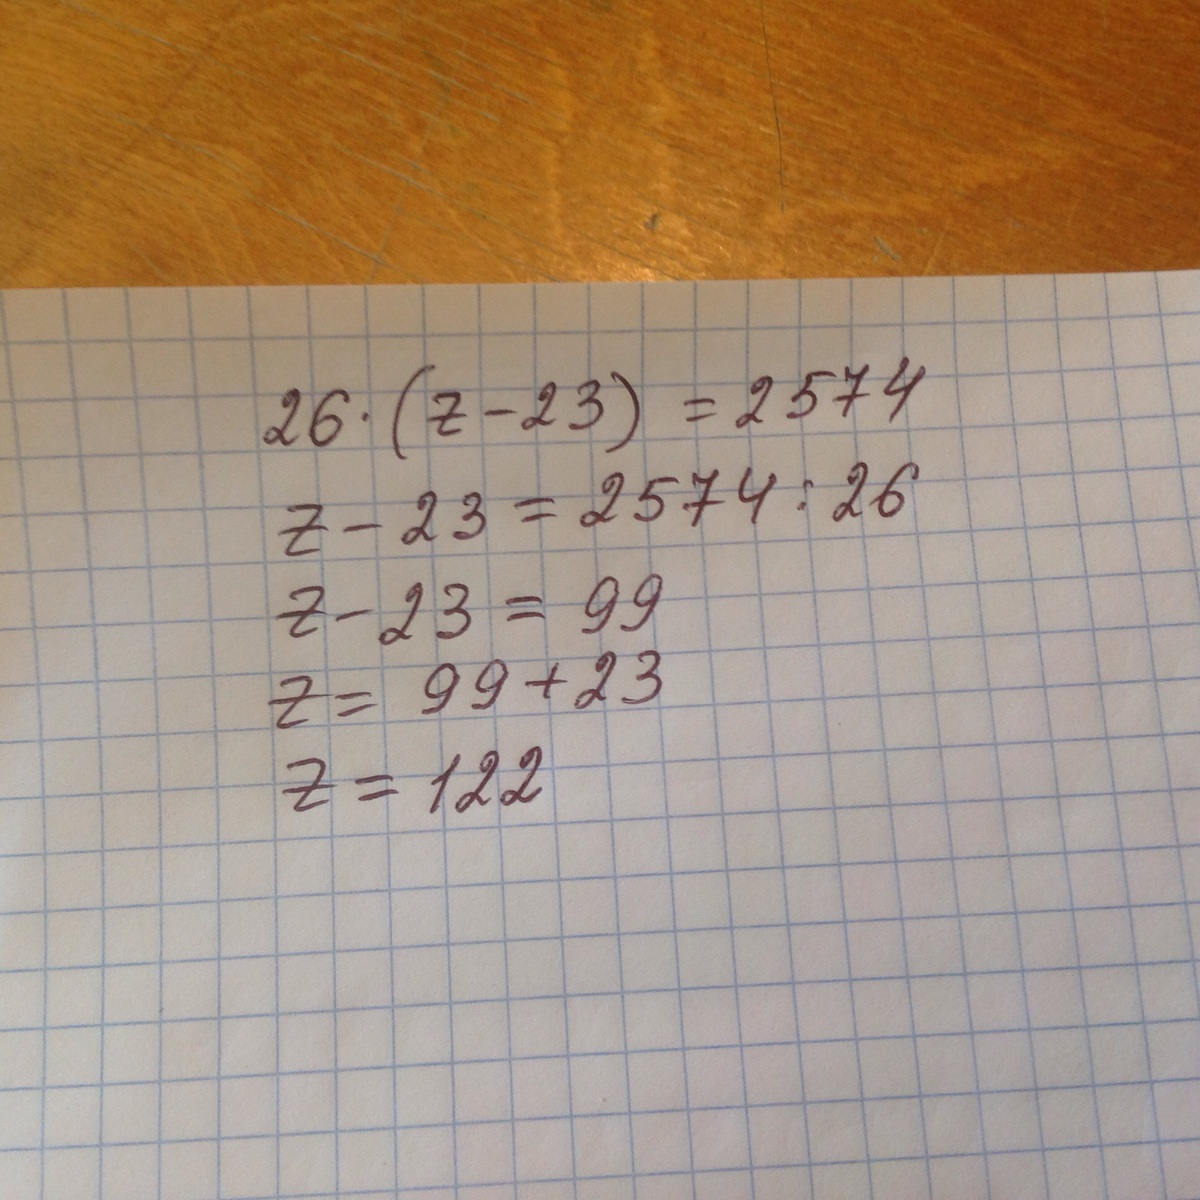 26·(z-23) = 2574
z-23 = 2574:26
z-23 = 99
z= 99+23
z = 122